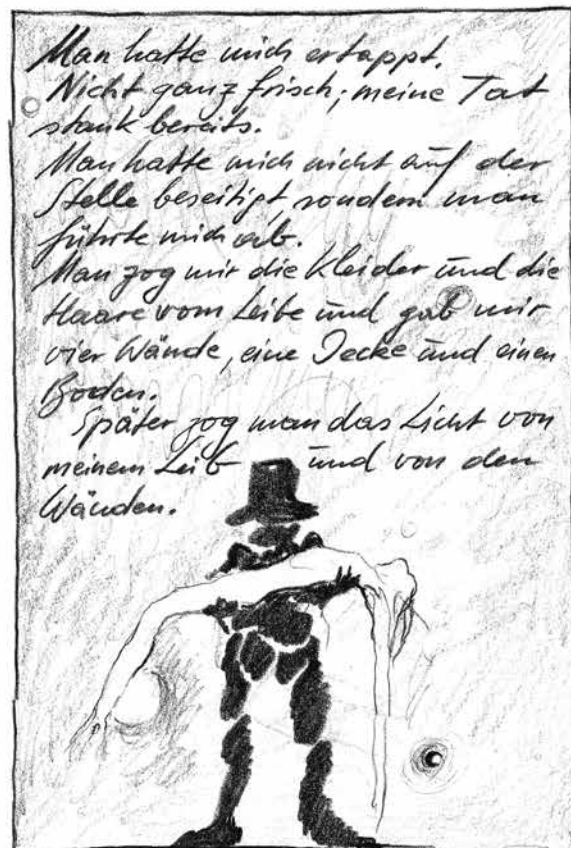 Man hatte mich ertappt.
Nicht ganz frisch; meine Tat
stank bereits.
Man hatte mich nicht auf der
Stelle beseitigt, sondern man
führte mich ab.
Man zog mir die Kleider und die
Haare vom Leibe und gab mir
vier Wände, eine Decke und einen
Boden.
Später zog man das Licht von
meinem Leib und von den
Wänden.